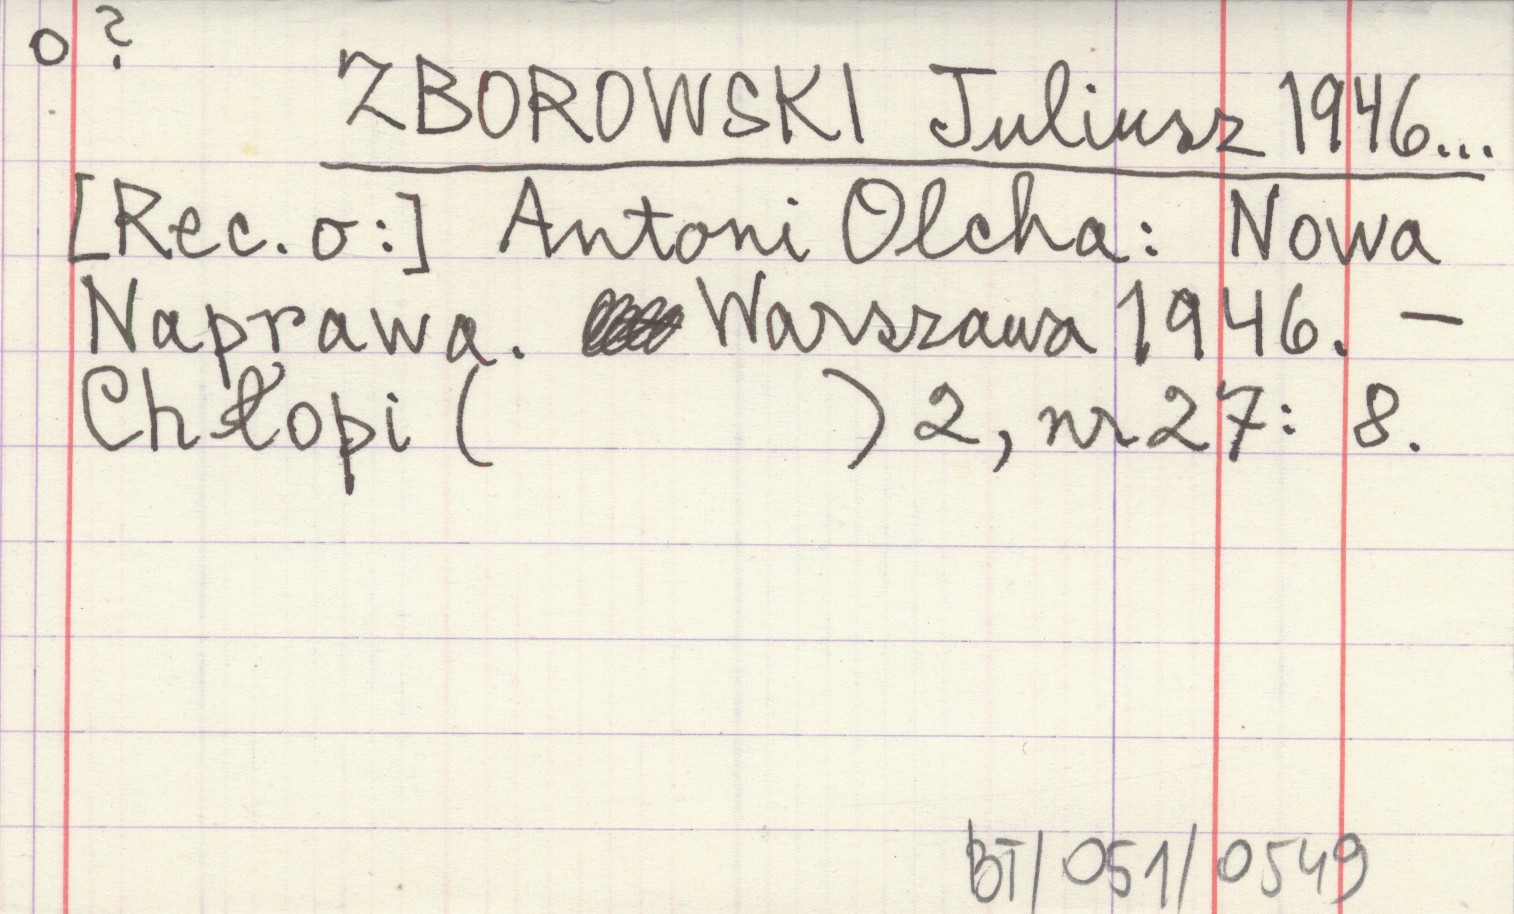 o ?
ZBOROWSKI Juliusz 1946...
[Rec. o:] Antoni Olcha: Nowa
Naprawa. Warszawa 1946. –
Chłopi ( ) 2, nr 27: 8.
BT/051/0549